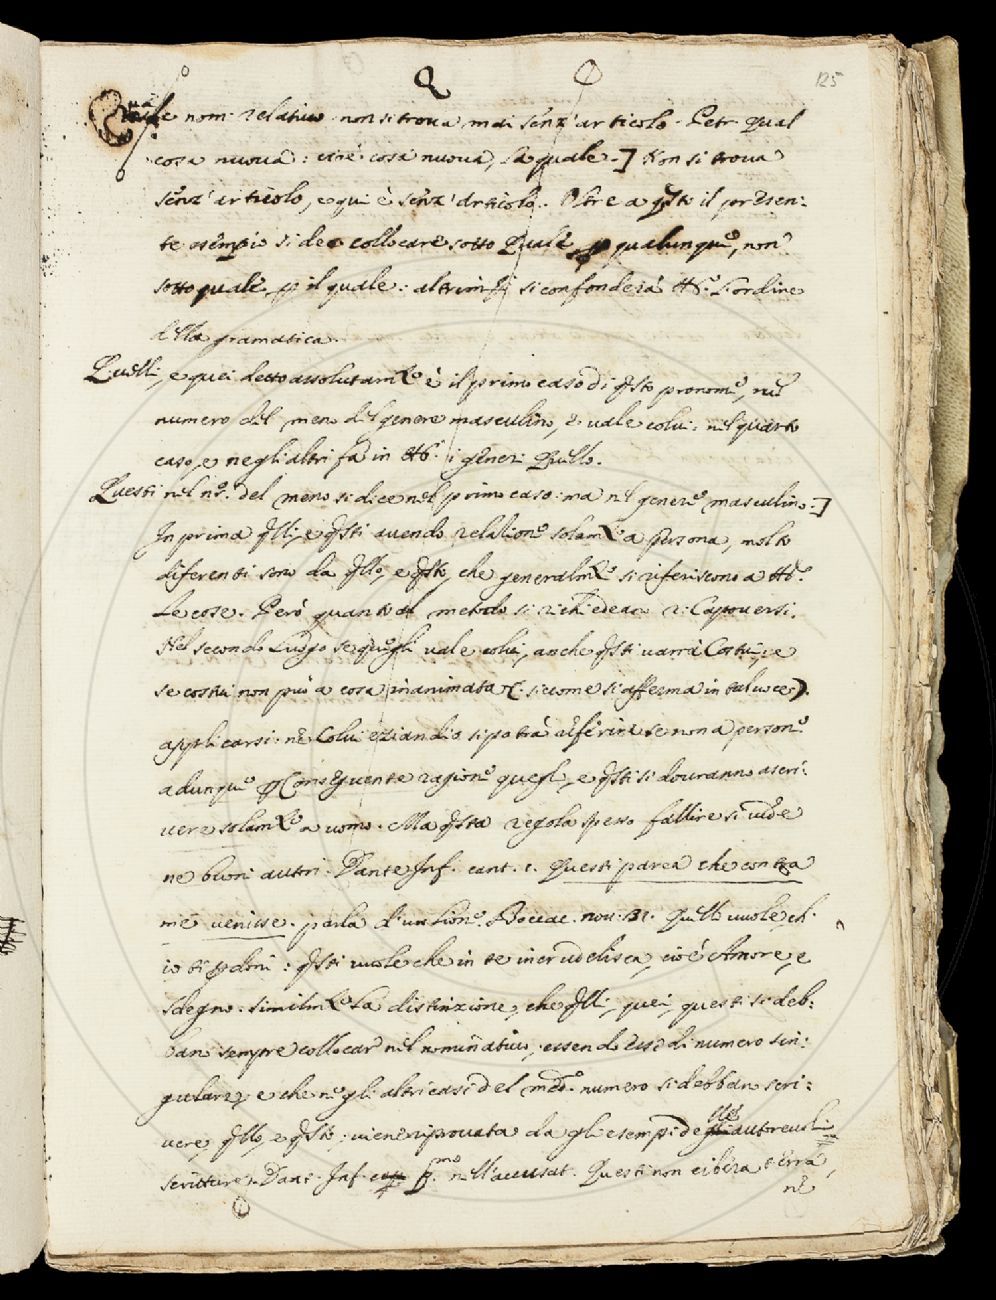 Q 125
Quale nom. relativo non si trova mai senz'articolo. Petr. Qual
cosa nuova: cioè cosa nuova, la quale.] Non si trova
senz'articolo, e qui è senz'articolo. Oltre a q̃sto il presen:
te esempio si dee collocare sotto Quale, p qualunque, non
sotto quale, p il quale: altrim.ti si confonderà tt.o l'ordine
della gramatica.
Quelli, e quei detto assolutam.te è il primo caso di q̃sto pronome, nel
numero del meno del genere masculino, e vale colui: nel quarto
caso, e negli altri fa in tt.i i generi Quello.
Questi nel n.o del meno si dice nel primo caso: ma nel genere masculino.]
In prima q̃lli, e q̃sti avendo relatione solam.te a Persona, molto
diferenti sono da q̃llo, e q̃sto, che generalm.te si riferiscono a tt.e
le cose. Però quanto al metodo si richiedeano 2 Capoversi.
Nel secondo luogo se quegli vale colui, anche q̃sti varrà Costui, e
se costui non può a cosa inanimata (siccome si afferma in tal voce)
applicarsi: ne Colui eziandio si potrà riferire se non a persone
adunque p Conseguente ragione quegli, e q̃sti si dovranno ascri:
vere solam.te a uomo. Ma q̃sta regola spesso fallire si vede
ne buoni autri. Dante Inf. cant. 1. Questi parea che contra
me venisse. parla d'un lione. Boccac. nov. 31. Quelli vuole, ch'
io ti pdoni: q̃sti vuole che in te incrudelisca, cioè Amore, e
sdegno. similm.te la distinzione, che q̃lli, quei, questi si deb:
bano sempre collocar nel nominativo, essendo essi di numero sin:
gulare, e che ne gli altri casi del med.o numero si debban scri:
vere, q̃llo, e q̃sto; viene riprovata da gli esempi de gli autrevoli
scritture. Dant. Inf. p.mo nell'accusat. Questi non ciberà terra,
nè